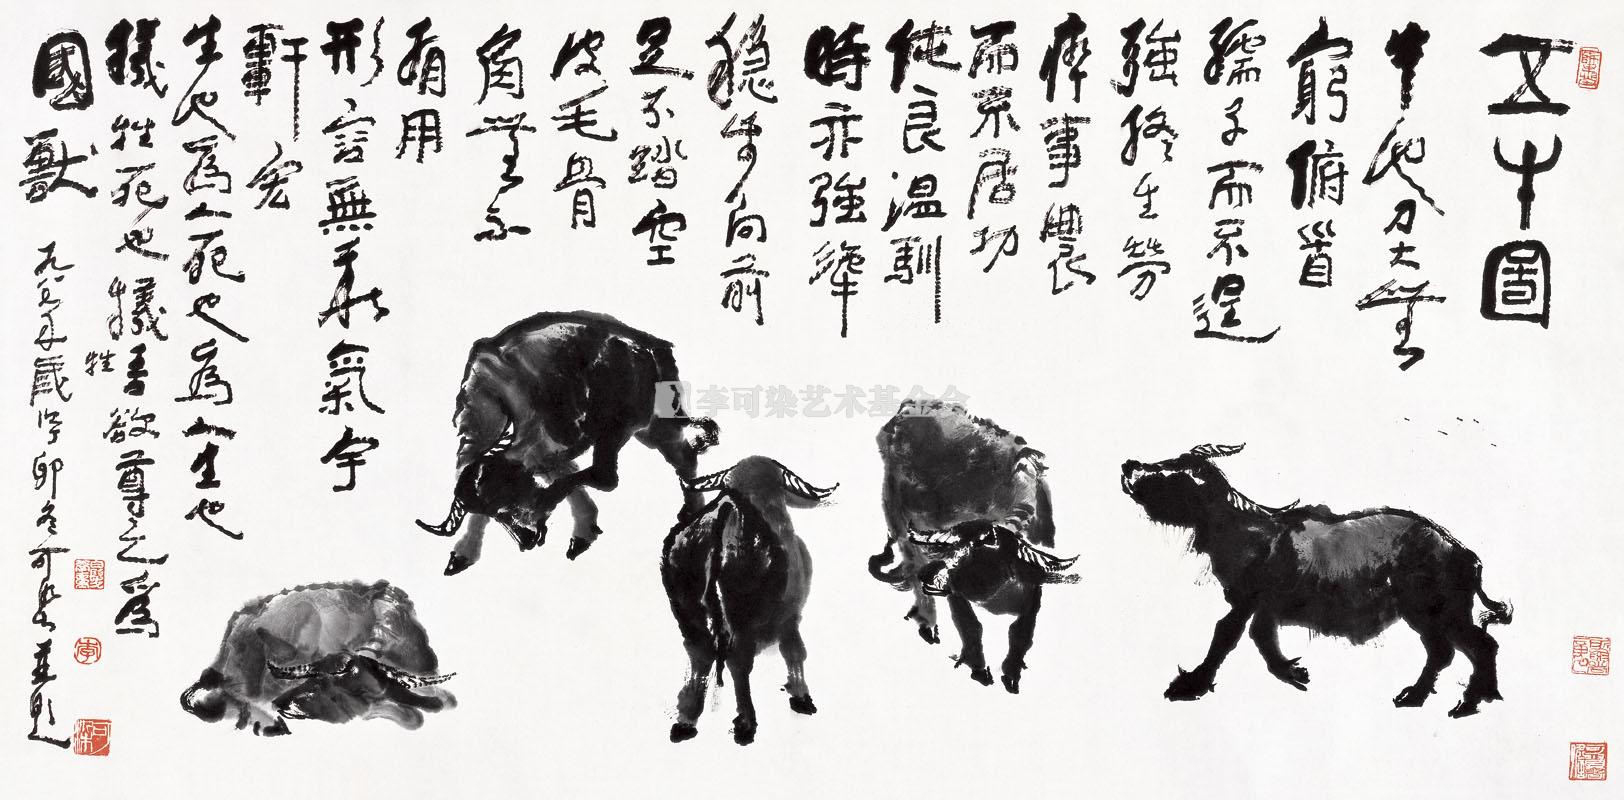 五牛圖
牛也力大無
窮俯首
孺子而不逞
強終生勞
瘁事農
而不居功
純良溫馴
時亦強犟
穩步向前
足不踏空
皮毛骨
角無不
有用
形容無華氣宇
軒宏
生也為人死也為人生也
犧牲死也犧牲吾欲尊之為
國獸
一九八七年歲次丁卯冬可染並題
李可染艺术基金会